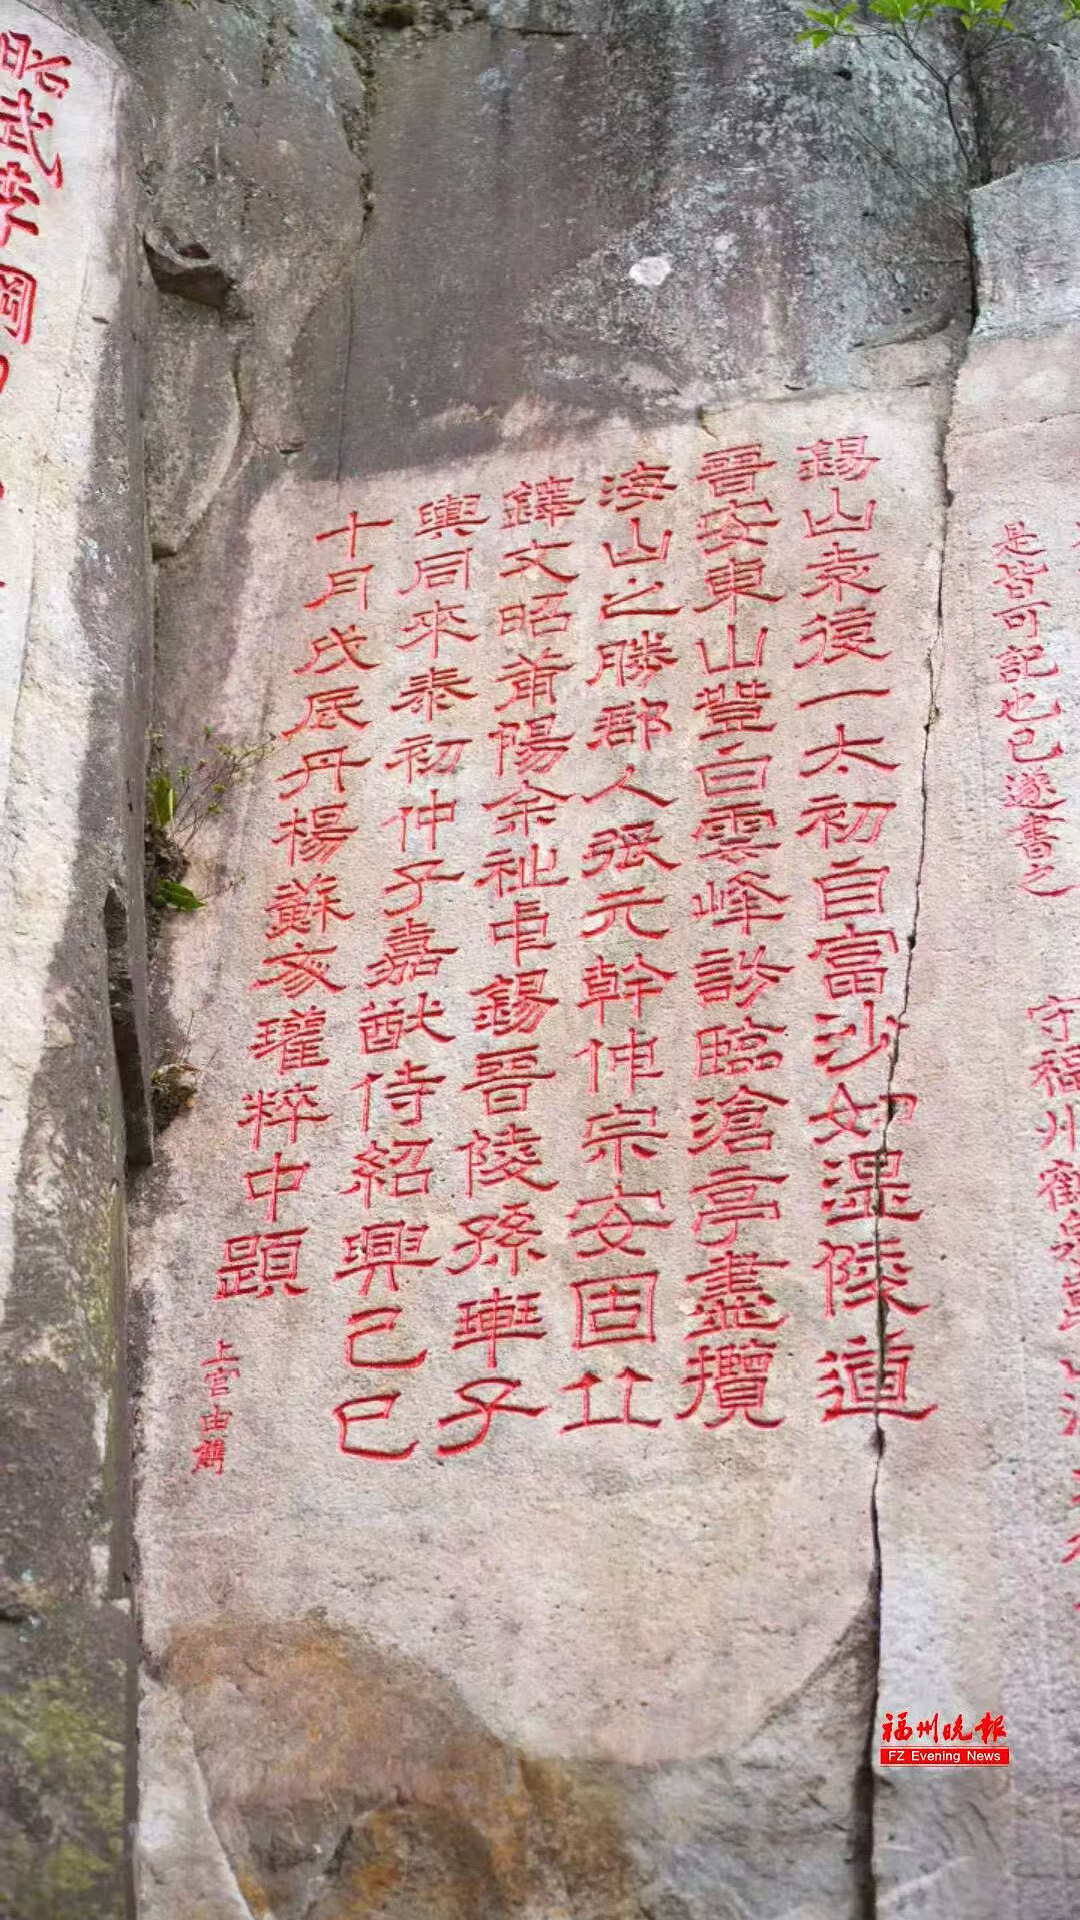 是皆可記也已遂書之
守福州
錫山袁復一太初自富沙如溫陵道
晉安東山登白雲峰訪臨滄亭盡攬
海山之勝郡人張元幹仲宗安固丘
鐸文昭莆陽余祉中錫晉陵孫子
輿同來泰初仲子嘉猷侍紹興己巳
十月戊辰丹楊蘇文瓘粹中題
上官由鐫
昭武李綱
福州晚報
FZ Evening News